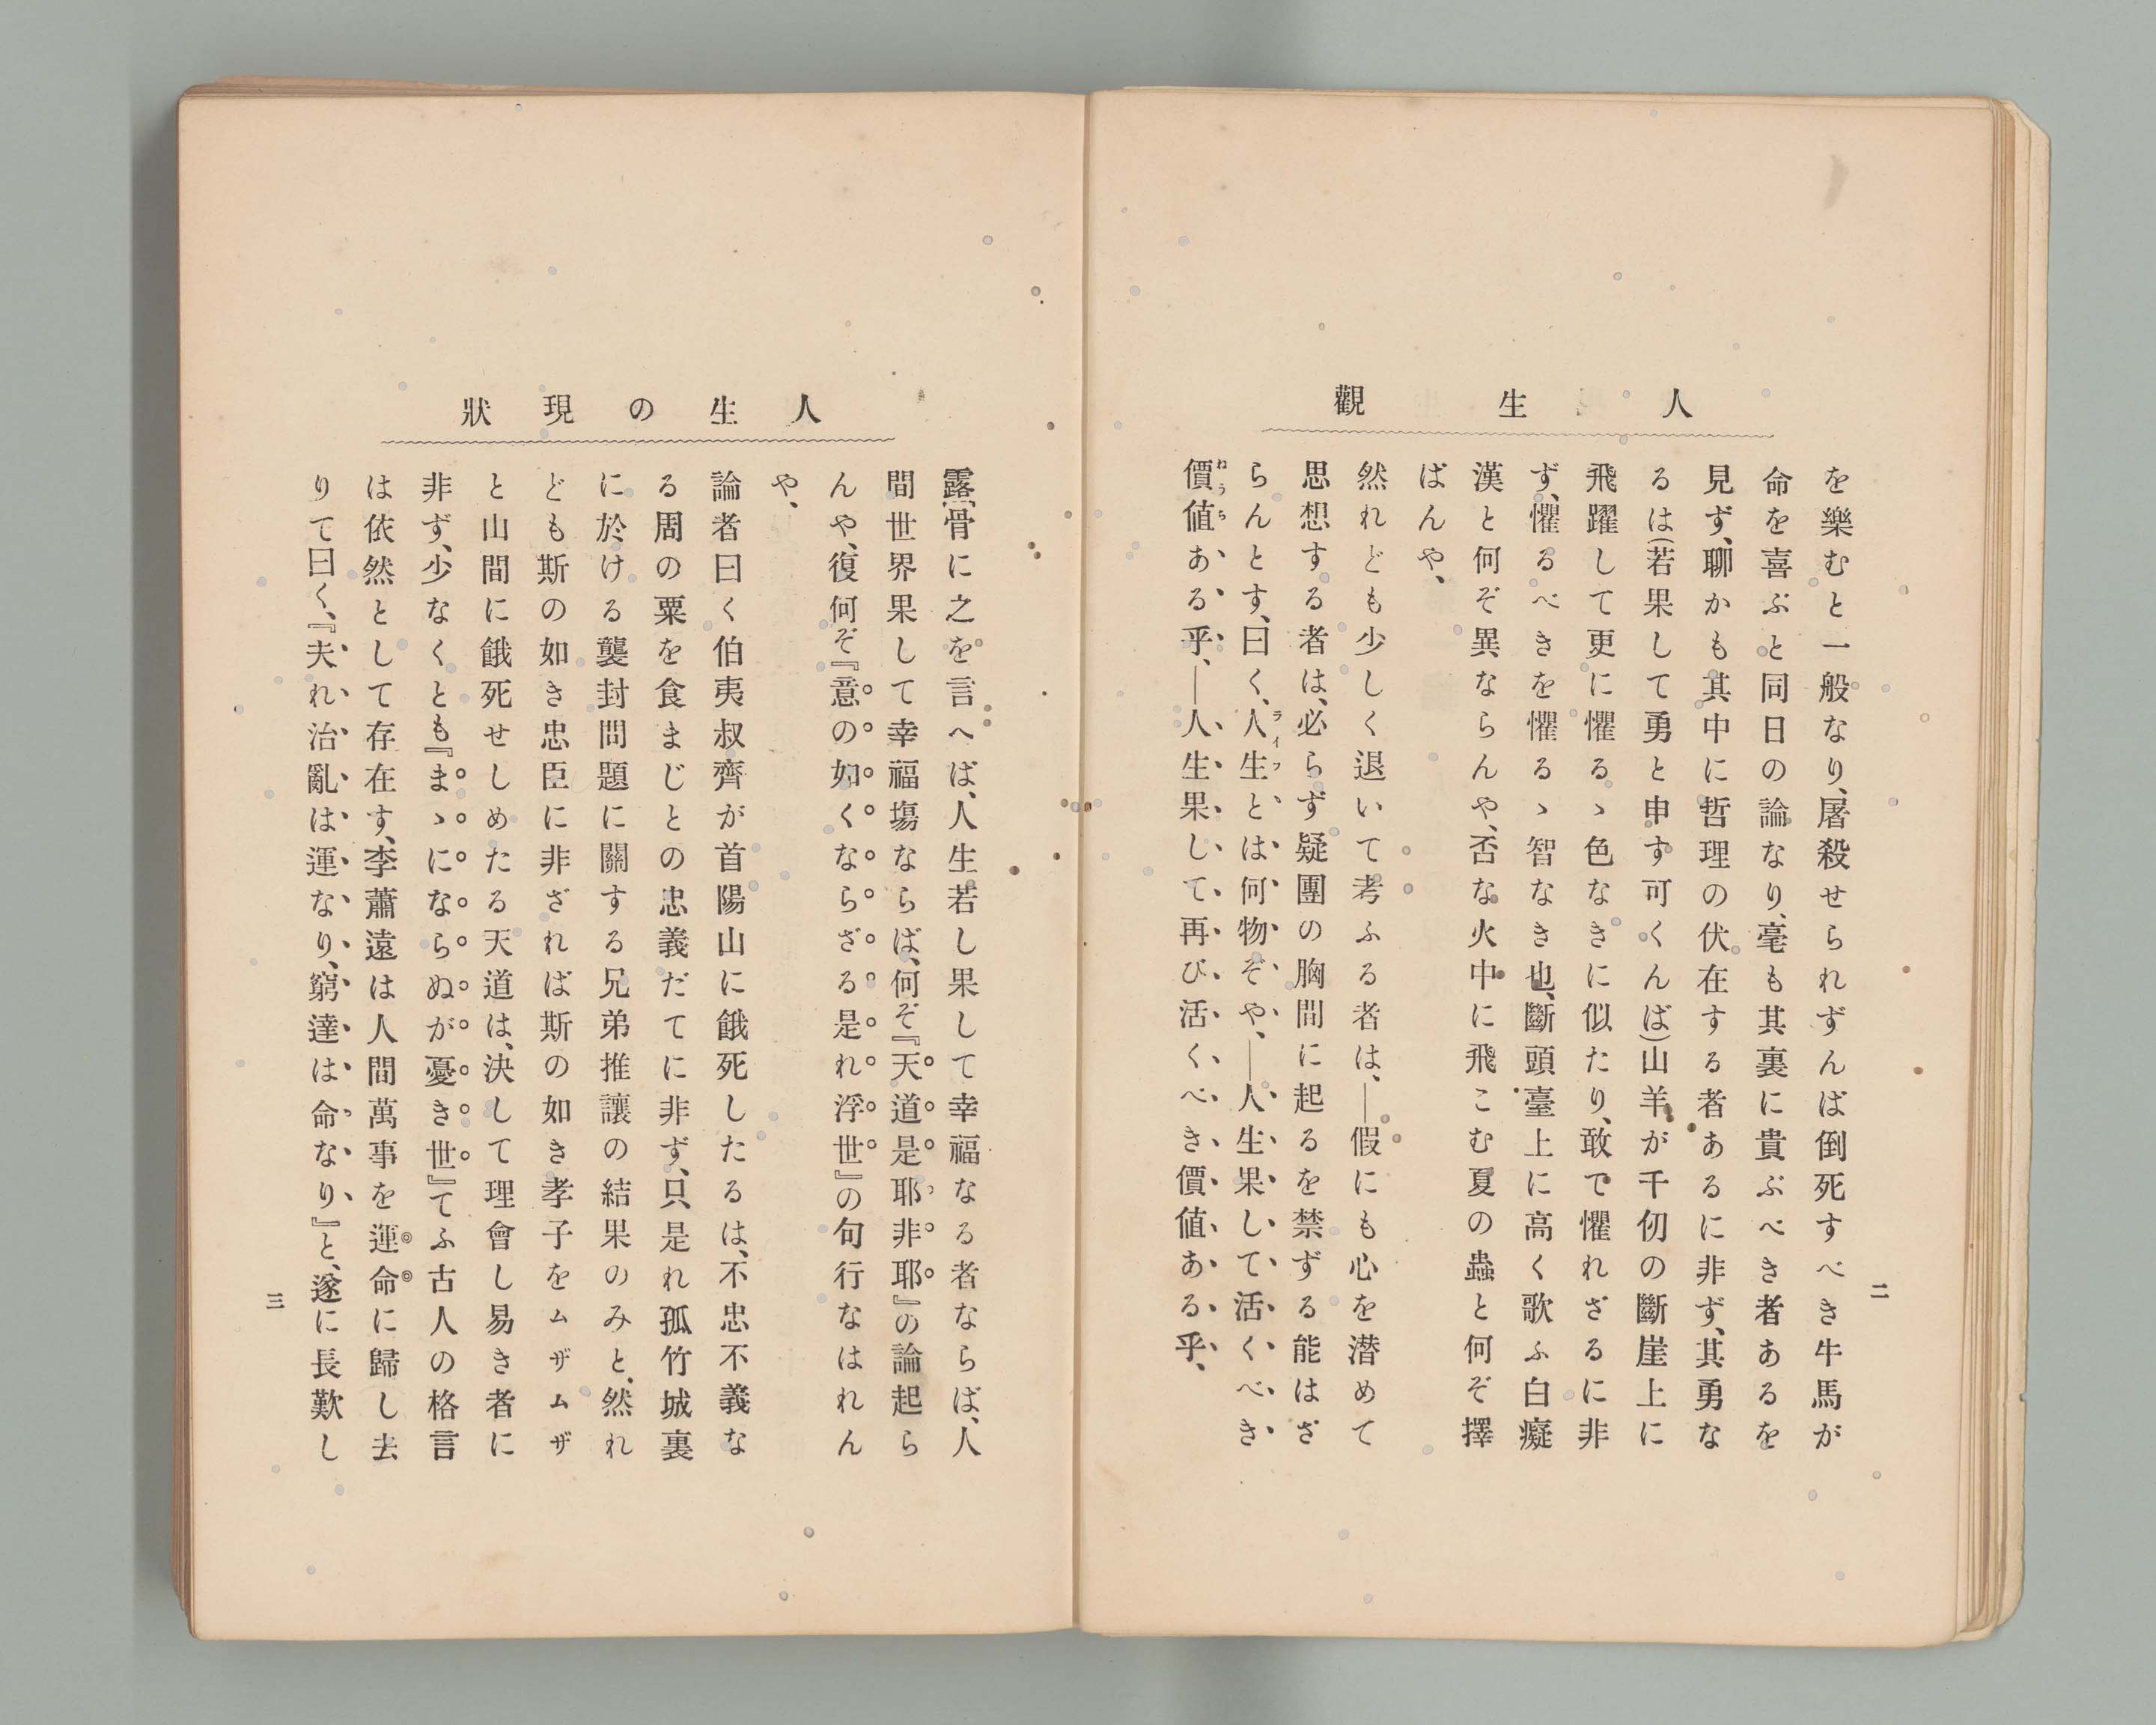 人生觀
二
を樂むと一般なり、屠殺せられずんば倒死すべき牛馬が
命を喜ぶと同日の論なり、毫も其裏に貴ぶべき者あるを
見ず、聊かも其中に哲理の伏在する者あるに非ず、其勇な
るは(若果して勇と申す可くんば)山羊が千仞の斷崖上に
飛躍して更に懼るゝ色なきに似たり、敢て懼れざるに非
ず、懼るべきを懼るゝ智なき也、斷頭臺上に高く歌ふ白癡
漢と何ぞ異ならんや、否な火中に飛こむ夏の蟲と何ぞ擇
ばんや、
然れども少しく退いて考ふる者は、―假にも心を潜めて
思想する者は、必らず疑團の胸間に起るを禁ずる能はざ
らんとす、曰く、人生とは何物ぞや、―人生果して活くべき
價値ある乎、―人生果して再び活くべき價値ある乎、
人生の現狀
露骨に之を言へば、人生若し果して幸福なる者ならば、人
間世界果して幸福塲ならば、何ぞ『天道是耶非耶』の論起ら
んや、復何ぞ『意の如くならざる是れ浮世』の句行なはれん
や、
論者曰く伯夷叔齊が首陽山に餓死したるは、不忠不義な
る周の粟を食まじとの忠義だてに非ず、只是れ孤竹城裏
に於ける襲封問題に關する兄弟推讓の結果のみと、然れ
ども斯の如き忠臣に非ざれば斯の如き孝子をムザムザ
と山間に餓死せしめたる天道は、決して理會し易き者に
非ず、少なくとも『まゝにならぬが憂き世』てふ古人の格言
は依然として存在す、李蕭遠は人間萬事を運命に歸し去
りて曰く、『夫れ治亂は運なり、窮達は命なり』と、遂に長歎し
三